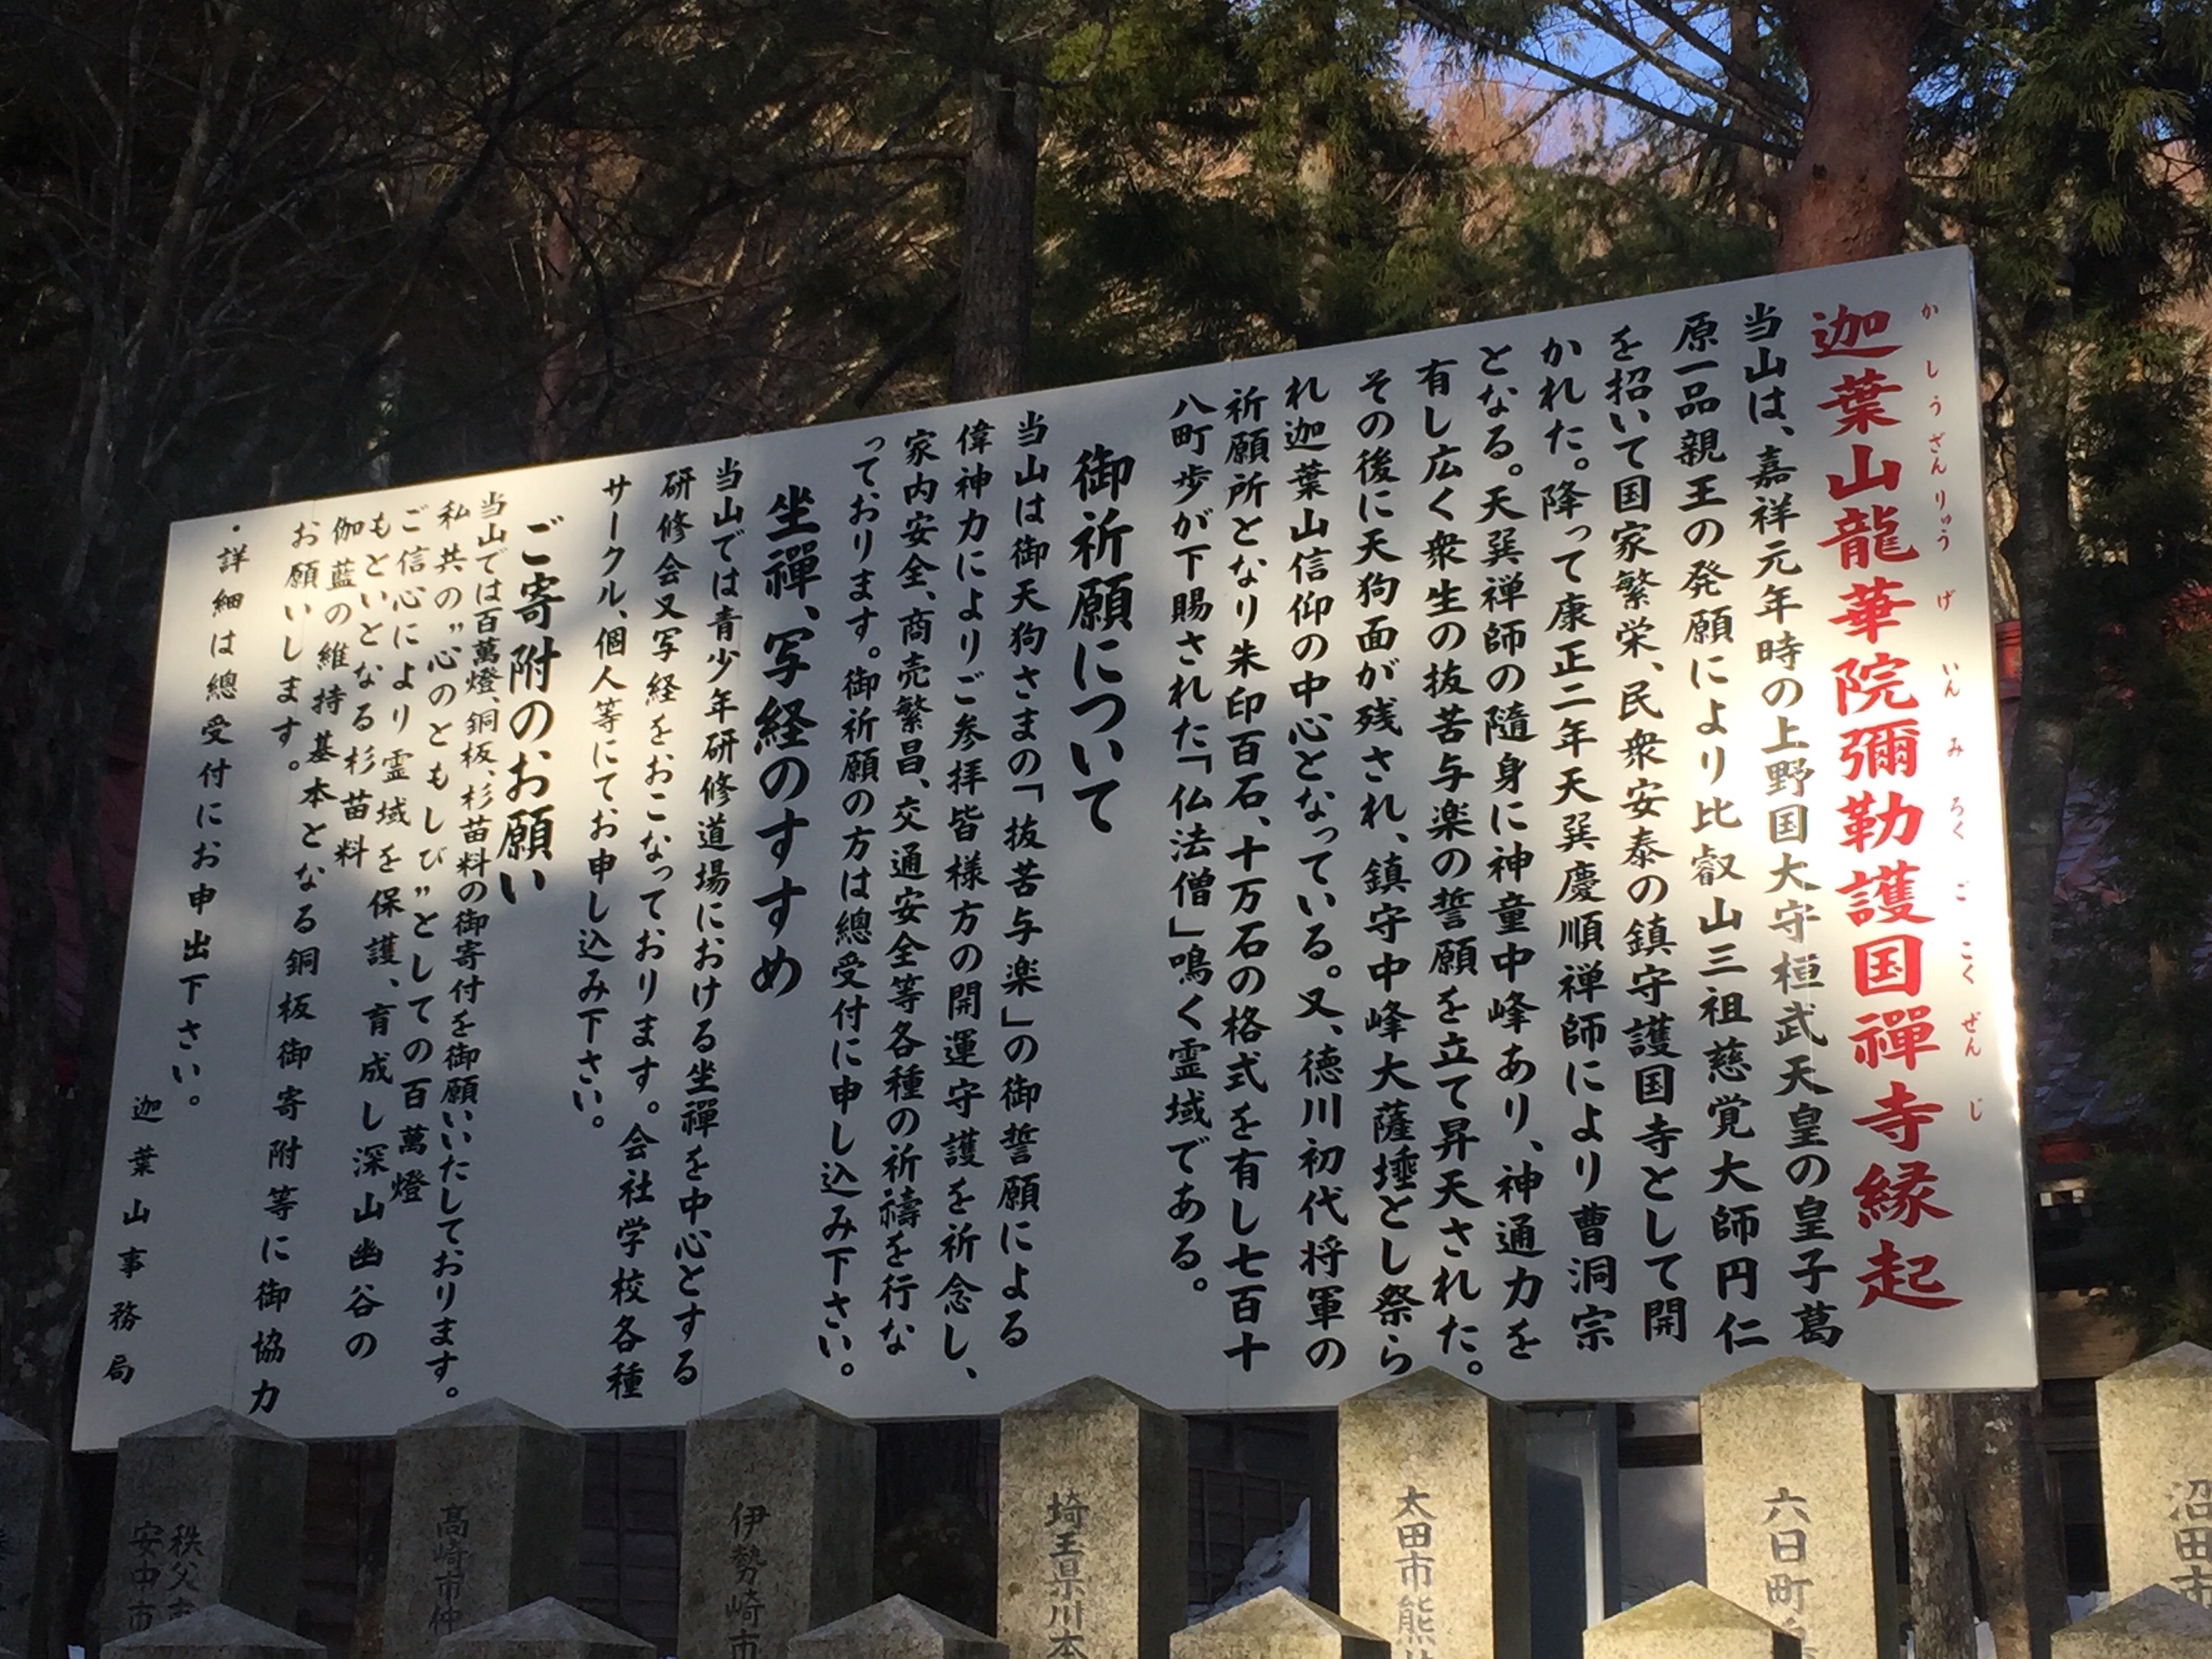 迦葉山龍華院彌勒護国禪寺縁起
かしょうざんりゅうげいんみろくごこくぜんじ
当山は、嘉祥元年時の上野国大守桓武天皇の皇子葛
原一品親王の発願により比叡山三祖慈覚大師円仁
を招いて国家繁栄、民衆安泰の鎮守護国寺として開
かれた。降って康正二年天巽慶順禅師により曹洞宗
となる。天巽禅師の随身に神童中峰あり、神通力を
有し広く衆生の抜苦与楽の誓願を立て昇天された。
その後に天狗面が残され、鎮守中峰大薩埵とし祭ら
れ迦葉山信仰の中心となっている。又、徳川初代将軍の
祈願所となり朱印百石、十万石の格式を有し七百十
八町歩が下賜された「仏法僧」鳴く霊域である。
御祈願について
当山は御天狗さまの「抜苦与楽」の御誓願による
偉神力によりご参拝皆様方の開運守護を祈念し、
家内安全、商売繁昌、交通安全等各種の祈禱を行な
っております。御祈願の方は總受付に申し込み下さい。
坐禪、写経のすすめ
当山では青少年研修道場における坐禪を中心とする
研修会又写経をおこなっております。会社学校各種
サークル、個人等にてお申し込み下さい。
ご寄附のお願い
当山では百萬燈、銅板、杉苗料の御寄付を御願いいたしております。
私共の〝心のともしび〟としての百萬燈
ご信心により霊域を保護、育成し深山幽谷の
もといとなる杉苗料
伽藍の維持基本となる銅板御寄附等に御協力
お願いします。
・詳細は總受付にお申出下さい。
迦葉山事務局
沼田市
六日町
太田市熊
埼玉県川本
伊勢崎市
高崎市仲
秩父市
安中市